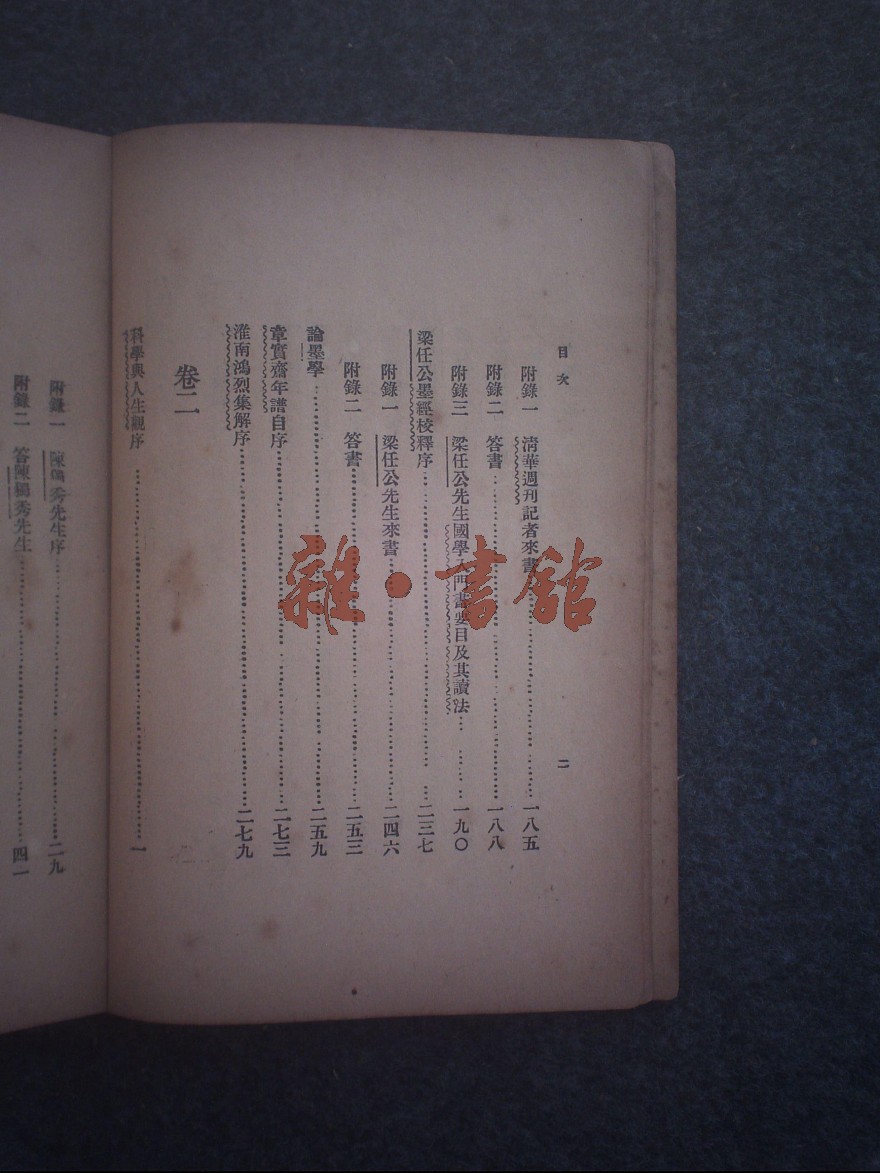 目次
二
附錄一 淸華週刊記者來書……一八五
附錄二 答書……一八八
附錄三 梁任公先生國學入門書要目及其讀法……一九〇
梁任公墨經校釋序……二三七
附錄一 梁任公先生來書……二四六
附錄二 答書……二五三
論墨學……二五九
章實齋年譜自序……二七三
淮南鴻烈集解序……二七九
卷二
科學與人生觀序……一
附錄一 陳獨秀先生序……二九
附錄二 答陳獨秀先生……四一
雜·書館